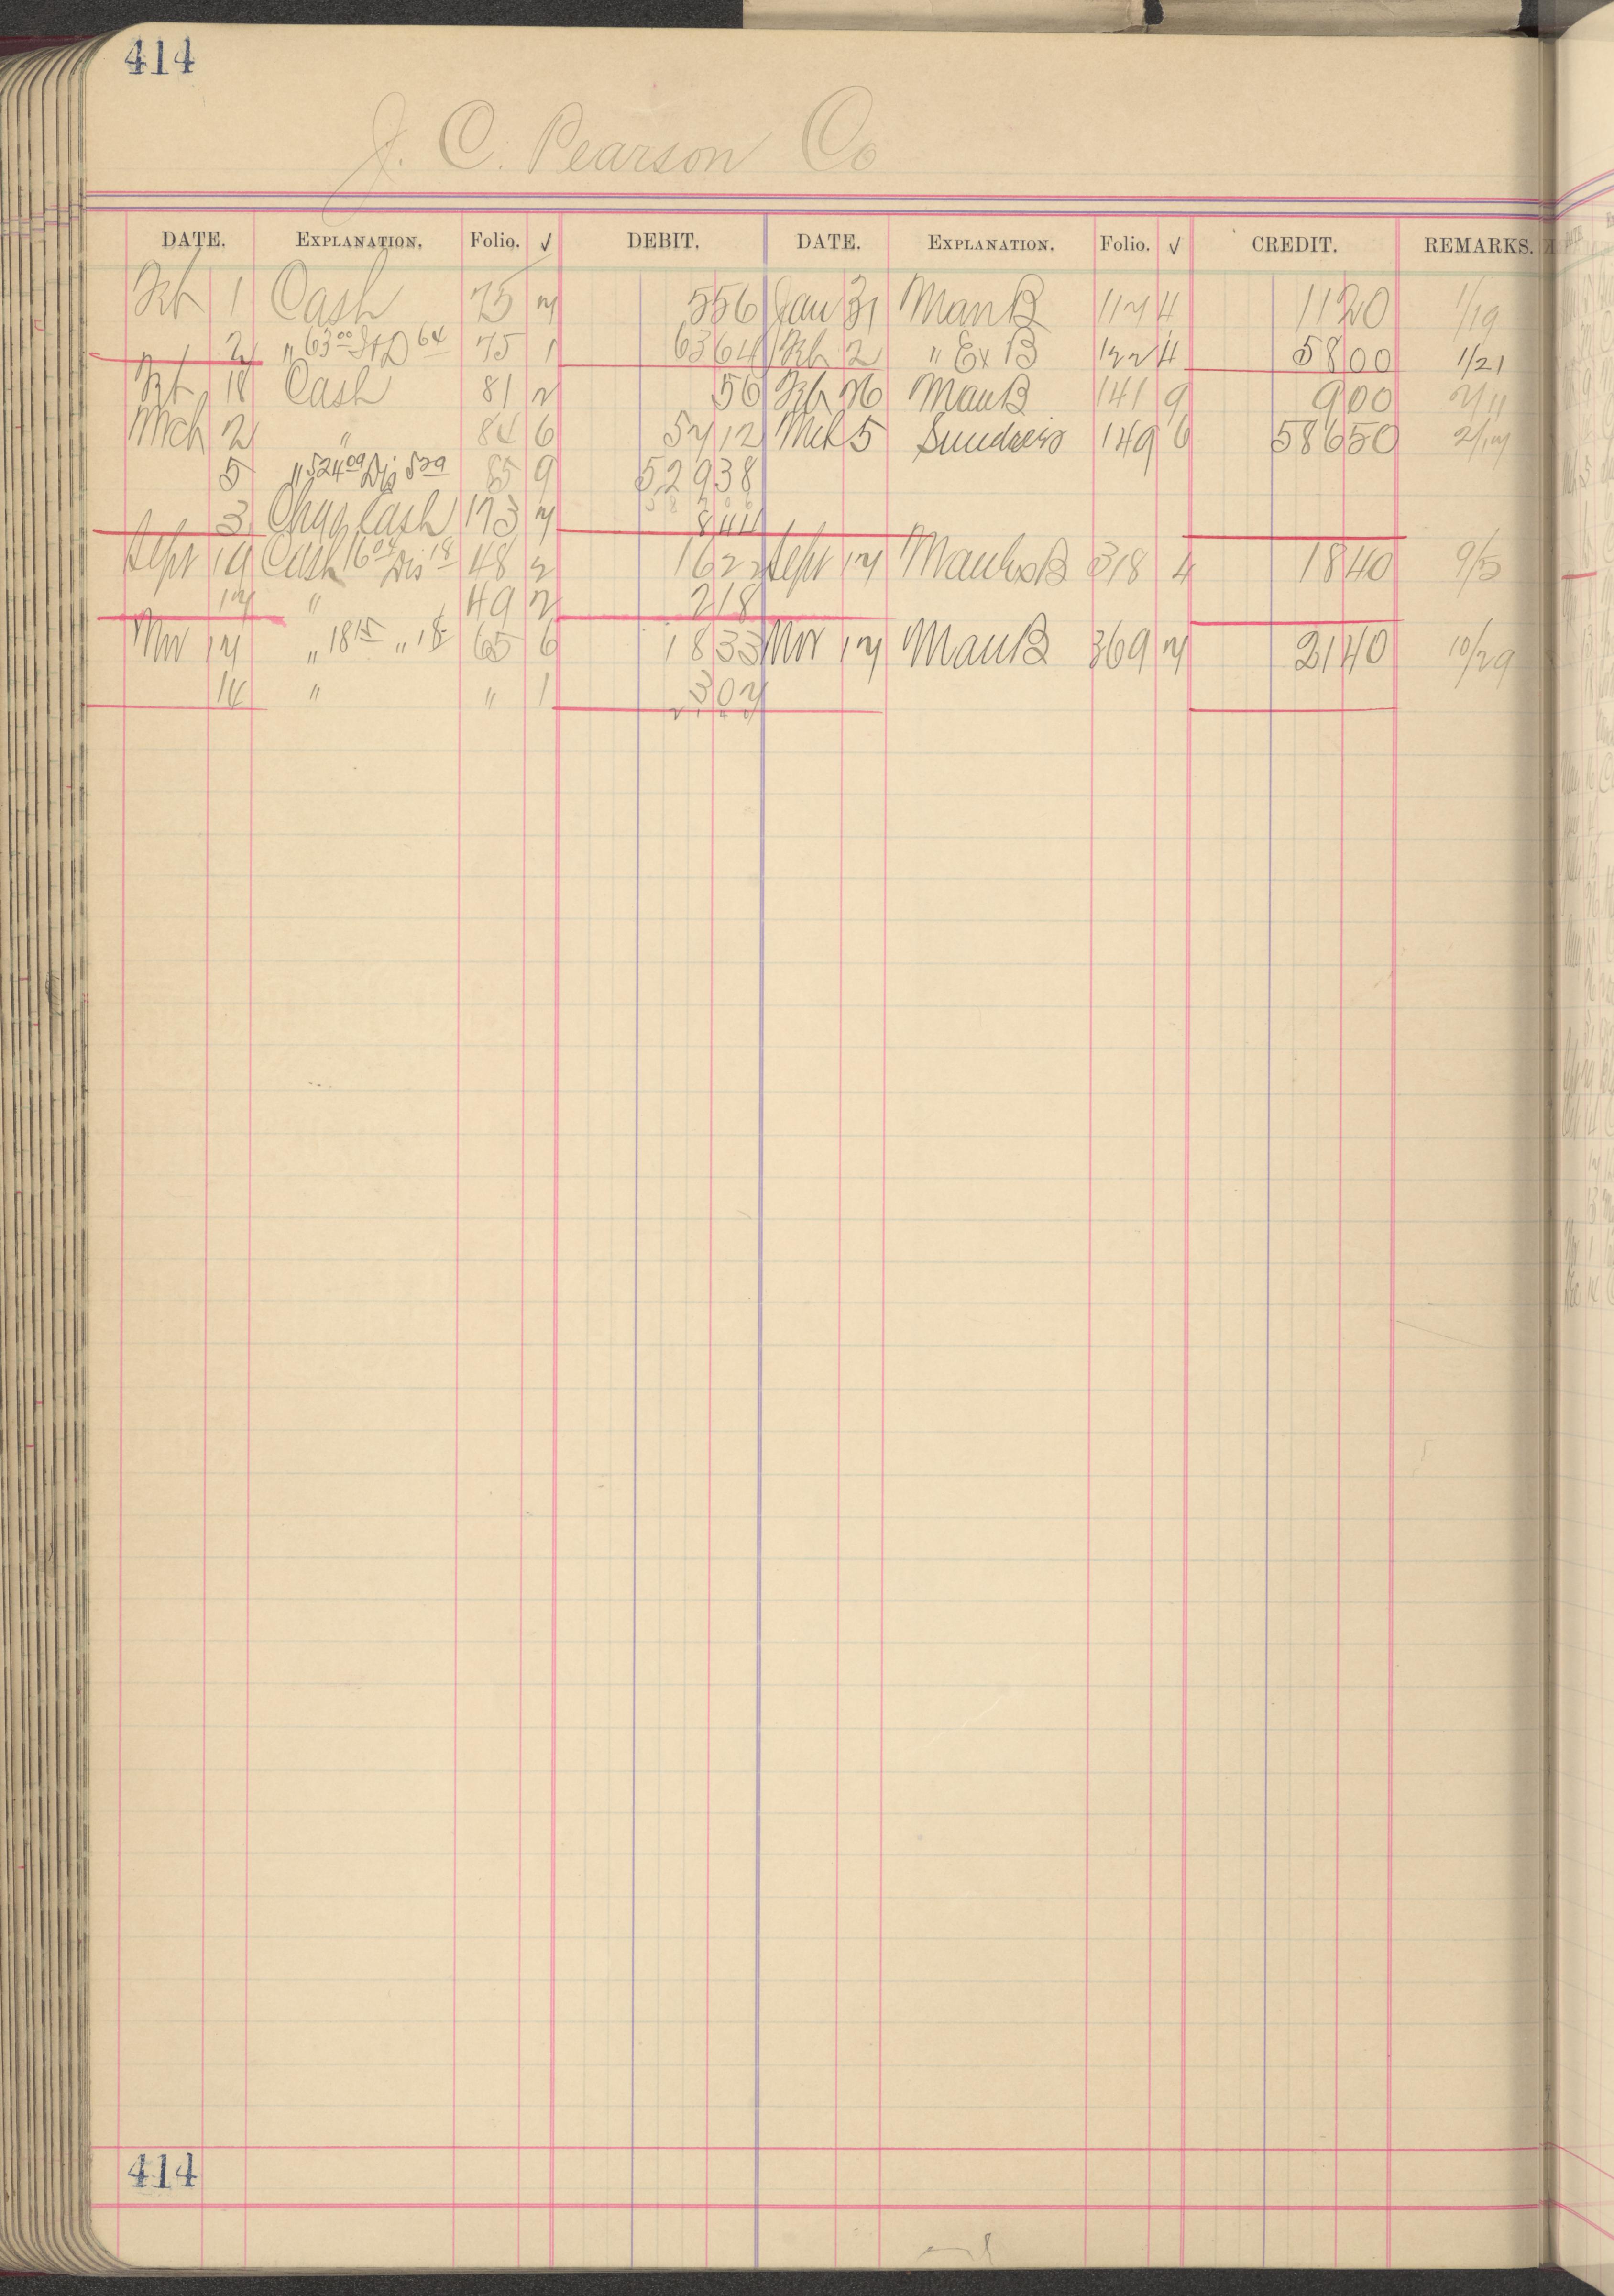 414
J. C. Pearson Co
DATE. EXPLANATION. Folio. √ DEBIT. DATE. EXPLANATION. Folio. √ CREDIT. REMARKS.
Feb 1 Cash 75 7 5 56 Jan 31 Man B 117 4 11 20 1/19
2 " 63 00 64 75 1 63 64 Feb 2 " Ex B 122 4 58 00 1/21
Feb 18 Cash 81 2 56 Feb 26 Man B 141 9 9 00 2/11
Mch 2 " 84 6 57 12 Mch 5 Sundries 149 6 586 50 2/17
5 " 524 09 Dis 5 29 85 9 529 38
3 Chgo Cash 173 7 8 44
Sept 14 Cash 16 04 Dis 18 48 2 16 22 Sept 17 B 318 4 18 40 9/3
17 " 49 2 2 18
Nov 17 " 18 15 " 18 65 6 18 33 Nov 17 Man B 369 7 21 40 10/29
14 " " 1 3 07
414